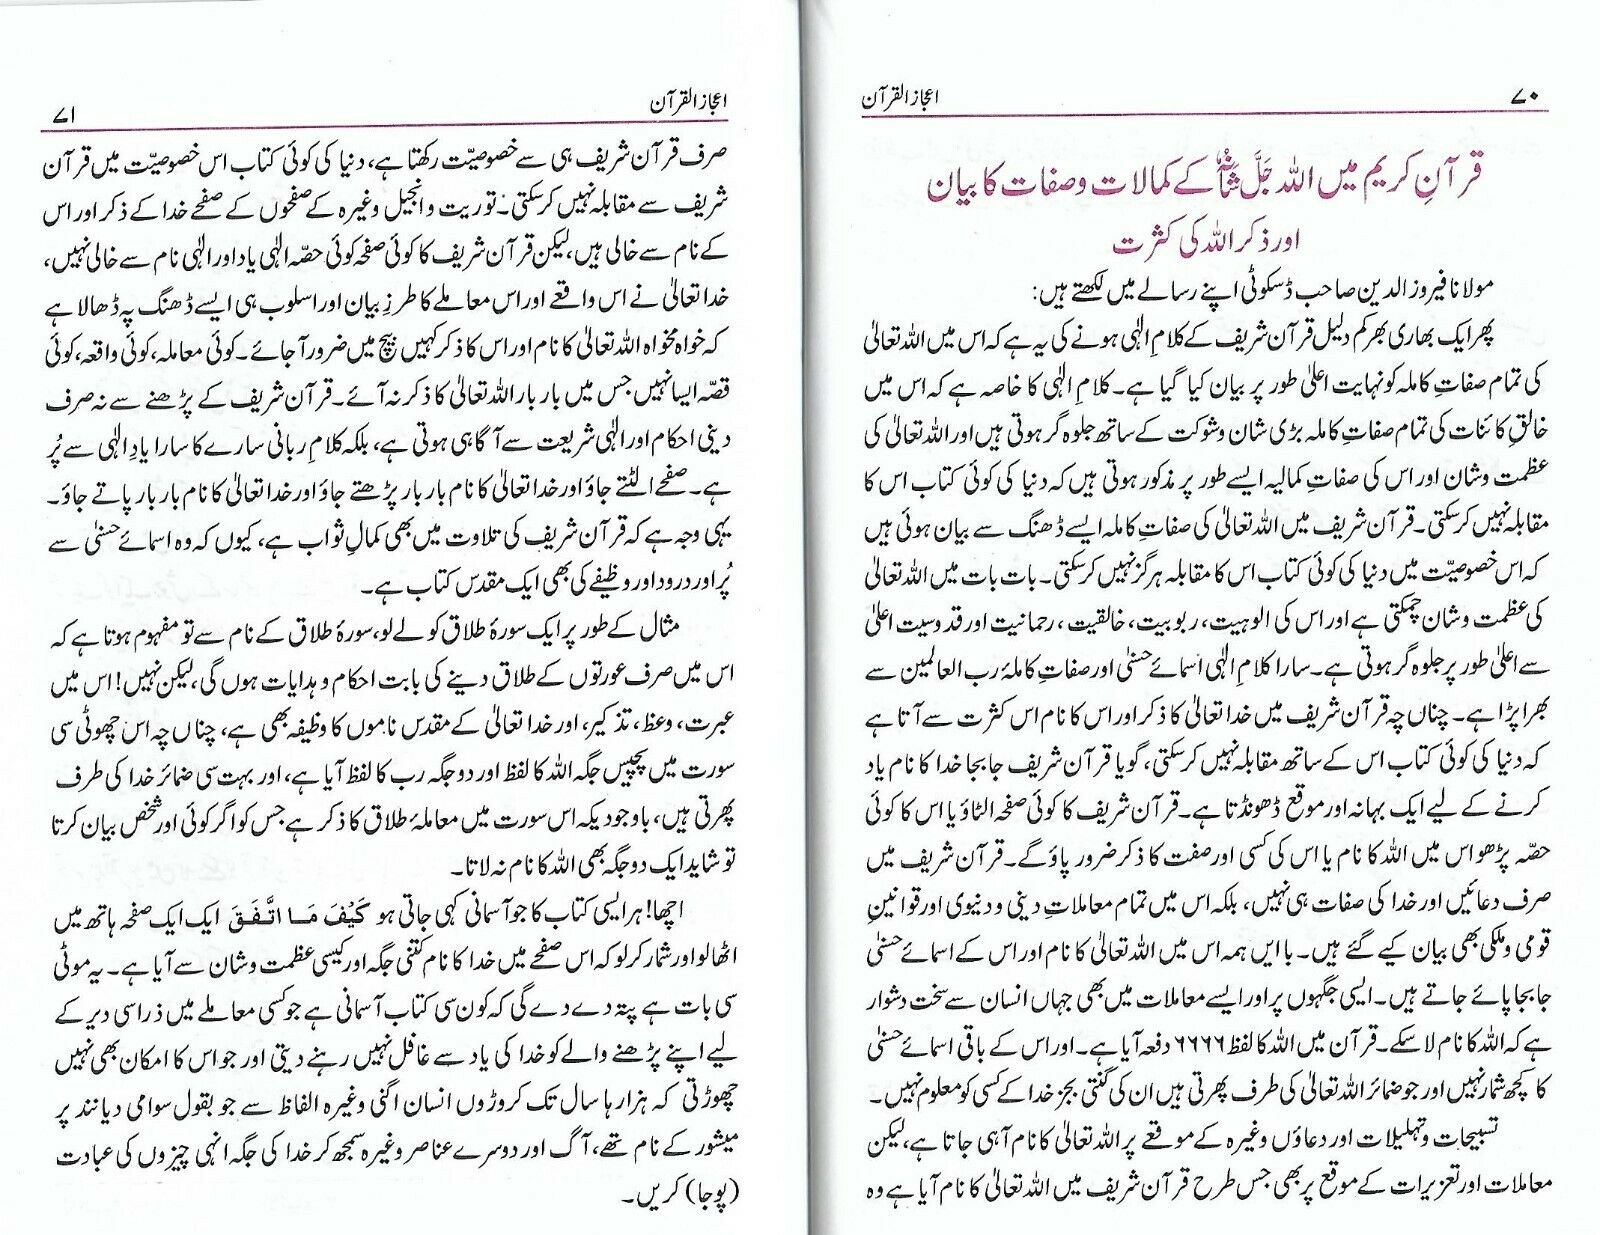 ۷۰
اعجاز القرآن
قرآنِ کریم میں اللہ جَلَّ شَانُہٗ کے کمالات وصفات کا بیان
اور ذکر اللہ کی کثرت
مولانا فیروز الدین صاحب ڈسکوٹی اپنے رسالے میں لکھتے ہیں:
پھر ایک بھاری بھرکم دلیل قرآن شریف کے کلامِ الٰہی ہونے کی یہ ہے کہ اس میں اللہ تعالیٰ
کی تمام صفاتِ کاملہ کو نہایت اعلیٰ طور پر بیان کیا گیا ہے۔ کلامِ الٰہی کا خاصہ ہے کہ اس میں
خالقِ کائنات کی تمام صفاتِ کاملہ بڑی شان وشوکت کے ساتھ جلوہ گر ہوتی ہیں اور اللہ تعالیٰ کی
عظمت وشان اور اس کی صفاتِ کمالیہ ایسے طور پر مذکور ہوتی ہیں کہ دنیا کی کوئی کتاب اس کا
مقابلہ نہیں کرسکتی۔ قرآن شریف میں اللہ تعالیٰ کی صفاتِ کاملہ ایسے ڈھنگ سے بیان ہوئی ہیں
کہ اس خصوصیّت میں دنیا کی کوئی کتاب اس کا مقابلہ ہرگز نہیں کرسکتی۔ بات بات میں اللہ تعالیٰ
کی عظمت وشان چمکتی ہے اور اس کی الوہیت، ربوبیت، خالقیت، رحمانیت اور قدوسیت اعلیٰ
سے اعلیٰ طور پر جلوہ گر ہوتی ہے۔ سارا کلامِ الٰہی اسمائے حسنیٰ اور صفاتِ کاملۂ رب العالمین سے
بھرا پڑا ہے۔ چناں چہ قرآن شریف میں خدا تعالیٰ کا ذکر اور اس کا نام اس کثرت سے آتا ہے
کہ دنیا کی کوئی کتاب اس کے ساتھ مقابلہ نہیں کرسکتی، گویا قرآن شریف جابجا خدا کا نام یاد
کرنے کے لیے ایک بہانہ اور موقع ڈھونڈتا ہے۔ قرآن شریف کا کوئی صفحہ الٹاؤ یا اس کا کوئی
حصّہ پڑھو اس میں اللہ کا نام یا اس کی کسی اور صفت کا ذکر ضرور پاؤ گے۔ قرآن شریف میں
صرف دعائیں اور خدا کی صفات ہی نہیں، بلکہ اس میں تمام معاملاتِ دینی ودنیوی اور قوانینِ
قومی وملکی بھی بیان کیے گئے ہیں۔ با ایں ہمہ اس میں اللہ تعالیٰ کا نام اور اس کے اسمائے حسنیٰ
جابجا پائے جاتے ہیں۔ ایسی جگہوں پر اور ایسے معاملات میں بھی جہاں انسان سے سخت دشوار
ہے کہ اللہ کا نام لاسکے۔ قرآن میں اللہ کا لفظ ۶۶۶۶ دفعہ آیا ہے۔ اور اس کے باقی اسمائے حسنیٰ
کا کچھ شمار نہیں اور جو ضمائر اللہ تعالیٰ کی طرف پھرتی ہیں ان کی گنتی بجز خدا کے کسی کو معلوم نہیں۔
تسبیحات وتہلیلات اور دعاؤں وغیرہ کے موقعے پر اللہ تعالیٰ کا نام آہی جاتا ہے، لیکن
معاملات اور تعزیرات کے موقع پر بھی جس طرح قرآن شریف میں اللہ تعالیٰ کا نام آیا ہے وہ
اعجاز القرآن
۷۱
صرف قرآن شریف ہی سے خصوصیّت رکھتا ہے، دنیا کی کوئی کتاب اس خصوصیّت میں قرآن
شریف سے مقابلہ نہیں کرسکتی۔ توریت وانجیل وغیرہ کے صفحوں کے صفحے خدا کے ذکر اور اس
کے نام سے خالی ہیں، لیکن قرآن شریف کا کوئی صفحہ کوئی حصّہ الٰہی یاد اور الٰہی نام سے خالی نہیں،
خدا تعالیٰ نے اس واقعے اور اس معاملے کا طرزِ بیان اور اسلوب ہی ایسے ڈھنگ پہ ڈھالا ہے
کہ خواہ مخواہ اللہ تعالیٰ کا نام اور اس کا ذکر کہیں بیچ میں ضرور آجائے۔ کوئی معاملہ، کوئی واقعہ، کوئی
قصّہ ایسا نہیں جس میں بار بار اللہ تعالیٰ کا ذکر نہ آئے۔ قرآن شریف کے پڑھنے سے نہ صرف
دینی احکام اور الٰہی شریعت سے آگاہی ہوتی ہے، بلکہ کلامِ ربانی سارے کا سارا یادِ الٰہی سے پُر
ہے۔ صفحے الٹتے جاؤ اور خدا تعالیٰ کا نام بار بار پڑھتے جاؤ اور خدا تعالیٰ کا نام بار بار پاتے جاؤ۔
یہی وجہ ہے کہ قرآن شریف کی تلاوت میں بھی کمالِ ثواب ہے، کیوں کہ وہ اسمائے حسنیٰ سے
پُر اور درود اور وظیفے کی بھی ایک مقدس کتاب ہے۔
مثال کے طور پر ایک سورۂ طلاق کو لے لو، سورۂ طلاق کے نام سے تو مفہوم ہوتا ہے کہ
اس میں صرف عورتوں کے طلاق دینے کی بابت احکام وہدایات ہوں گی، لیکن نہیں! اس میں
عبرت، وعظ، تذکیر، اور خدا تعالیٰ کے مقدس ناموں کا وظیفہ بھی ہے، چناں چہ اس چھوٹی سی
سورت میں پچیس جگہ اللہ کا لفظ اور دو جگہ رب کا لفظ آیا ہے، اور بہت سی ضمائر خدا کی طرف
پھرتی ہیں، باوجودیکہ اس سورت میں معاملۂ طلاق کا ذکر ہے جس کو اگر کوئی اور شخص بیان کرتا
تو شاید ایک دو جگہ بھی اللہ کا نام نہ لاتا۔
اچھا! ہر ایسی کتاب کا جو آسمانی کہی جاتی ہو کَیْفَ مَا اتَّفَقَ ایک ایک صفحہ ہاتھ میں
اٹھالو اور شمار کرلو کہ اس صفحے میں خدا کا نام کتنی جگہ اور کیسی عظمت وشان سے آیا ہے۔ یہ موٹی
سی بات ہے پتہ دے دے گی کہ کون سی کتاب آسمانی ہے جو کسی معاملے میں ذرا سی دیر کے
لیے اپنے پڑھنے والے کو خدا کی یاد سے غافل نہیں رہنے دیتی اور جو اس کا امکان بھی نہیں
چھوڑتی کہ ہزارہا سال تک کروڑوں انسان اگنی وغیرہ الفاظ سے جو بقول سوامی دیانند پر
میشور کے نام تھے، آگ اور دوسرے عناصر وغیرہ سمجھ کر خدا کی جگہ انہی چیزوں کی عبادت
(پوجا) کریں۔